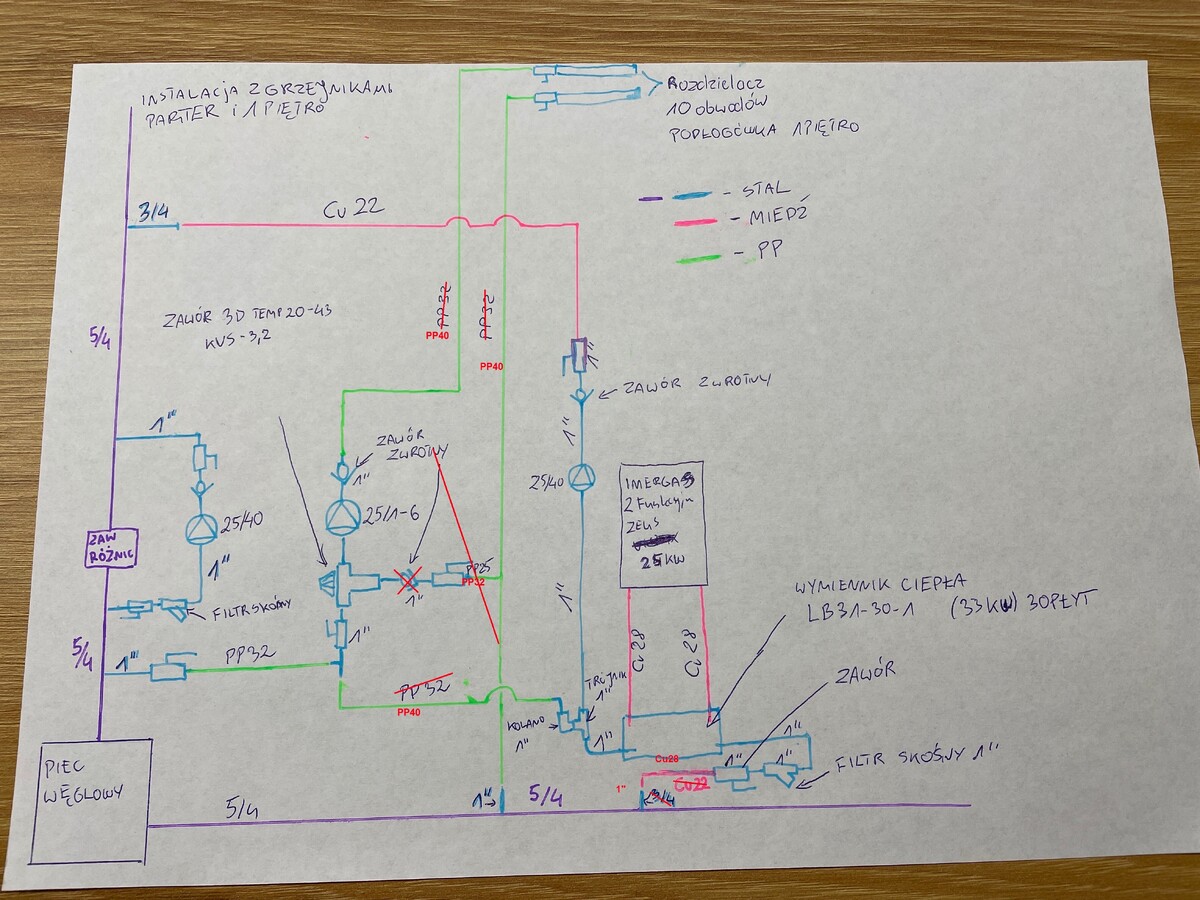 INSTALACJA Z GRZEJNIKAMI
PARTER i 1 PIĘTRO
Rozdzielacz
10 obwodów
PODŁOGÓWKA 1 PIĘTRO
- STAL
- MIEDŹ
- PP
3/4
Cu 22
ZAWÓR 3D TEMP 20-43
KVS - 3,2
PP32
PP32
PP40
PP40
5/4
1"
ZAWÓR ZWROTNY
1"
1"
ZAWÓR
ZWROTNY
1"
25/40
25/1-6
25/40
ZAW
RÓŻNIC
1"
IMERGAS
2 Funkcyjn
ZEUS
25 KW
PP25
PP32
1"
1"
FILTR SKOŚNY
WYMIENNIK CIEPŁA
LB31-30-1 (33 KW) 30 PŁYT
5/4
1"
PP32
1"
Cu 28
Cu 28
PP32
PP40
TRÓJNIK
1"
KOLANO
1"
1"
ZAWÓR
1"
FILTR SKOŚNY 1"
Cu28
1"
1"
Cu22
1"
3/4
PIEC
WĘGLOWY
5/4
1"
5/4